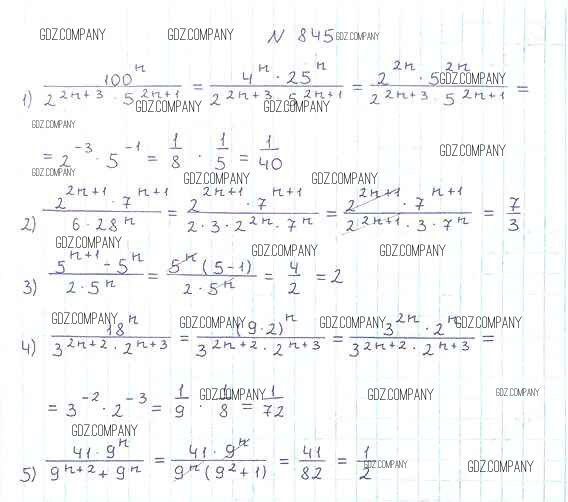 GDZ.COMPANY GDZ.COMPANY N 845 GDZ.COMPANY
1) 100^n / (2^(2n+3) · 5^(2n+1)) = (4^n · 25^n) / (2^(2n+3) · 5^(2n+1)) = (2^(2n) · 5^(2n)) / (2^(2n+3) · 5^(2n+1)) =
GDZ.COMPANY
GDZ.COMPANY GDZ.COMPANY
GDZ.COMPANY
= 2^(-3) · 5^(-1) = 1/8 · 1/5 = 1/40
GDZ.COMPANY
GDZ.COMPANY GDZ.COMPANY GDZ.COMPANY
2) (2^(2n+1) · 7^(n+1)) / (6 · 28^n) = (2^(2n+1) · 7^(n+1)) / (2 · 3 · 2^(2n) · 7^n) = (2^(2n+1) · 7^(n+1)) / (2^(2n+1) · 3 · 7^n) = 7/3
GDZ.COMPANY GDZ.COMPANY GDZ.COMPANY
3) (5^(n+1) - 5^n) / (2 · 5^n) = (5^n (5-1)) / (2 · 5^n) = 4/2 = 2
GDZ.COMPANY GDZ.COMPANY GDZ.COMPANY GDZ.COMPANY
4) 18^n / (3^(2n+2) · 2^(n+3)) = (9·2)^n / (3^(2n+2) · 2^(n+3)) = (3^(2n) · 2^n) / (3^(2n+2) · 2^(n+3)) =
GDZ.COMPANY GDZ.COMPANY GDZ.COMPANY
= 3^(-2) · 2^(-3) = 1/9 · 1/8 = 1/72
GDZ.COMPANY
5) (41 · 9^n) / (9^(n+2) + 9^n) = (41 · 9^n) / (9^n (9^2+1)) = 41/82 = 1/2
GDZ.COMPANY GDZ.COMPANY